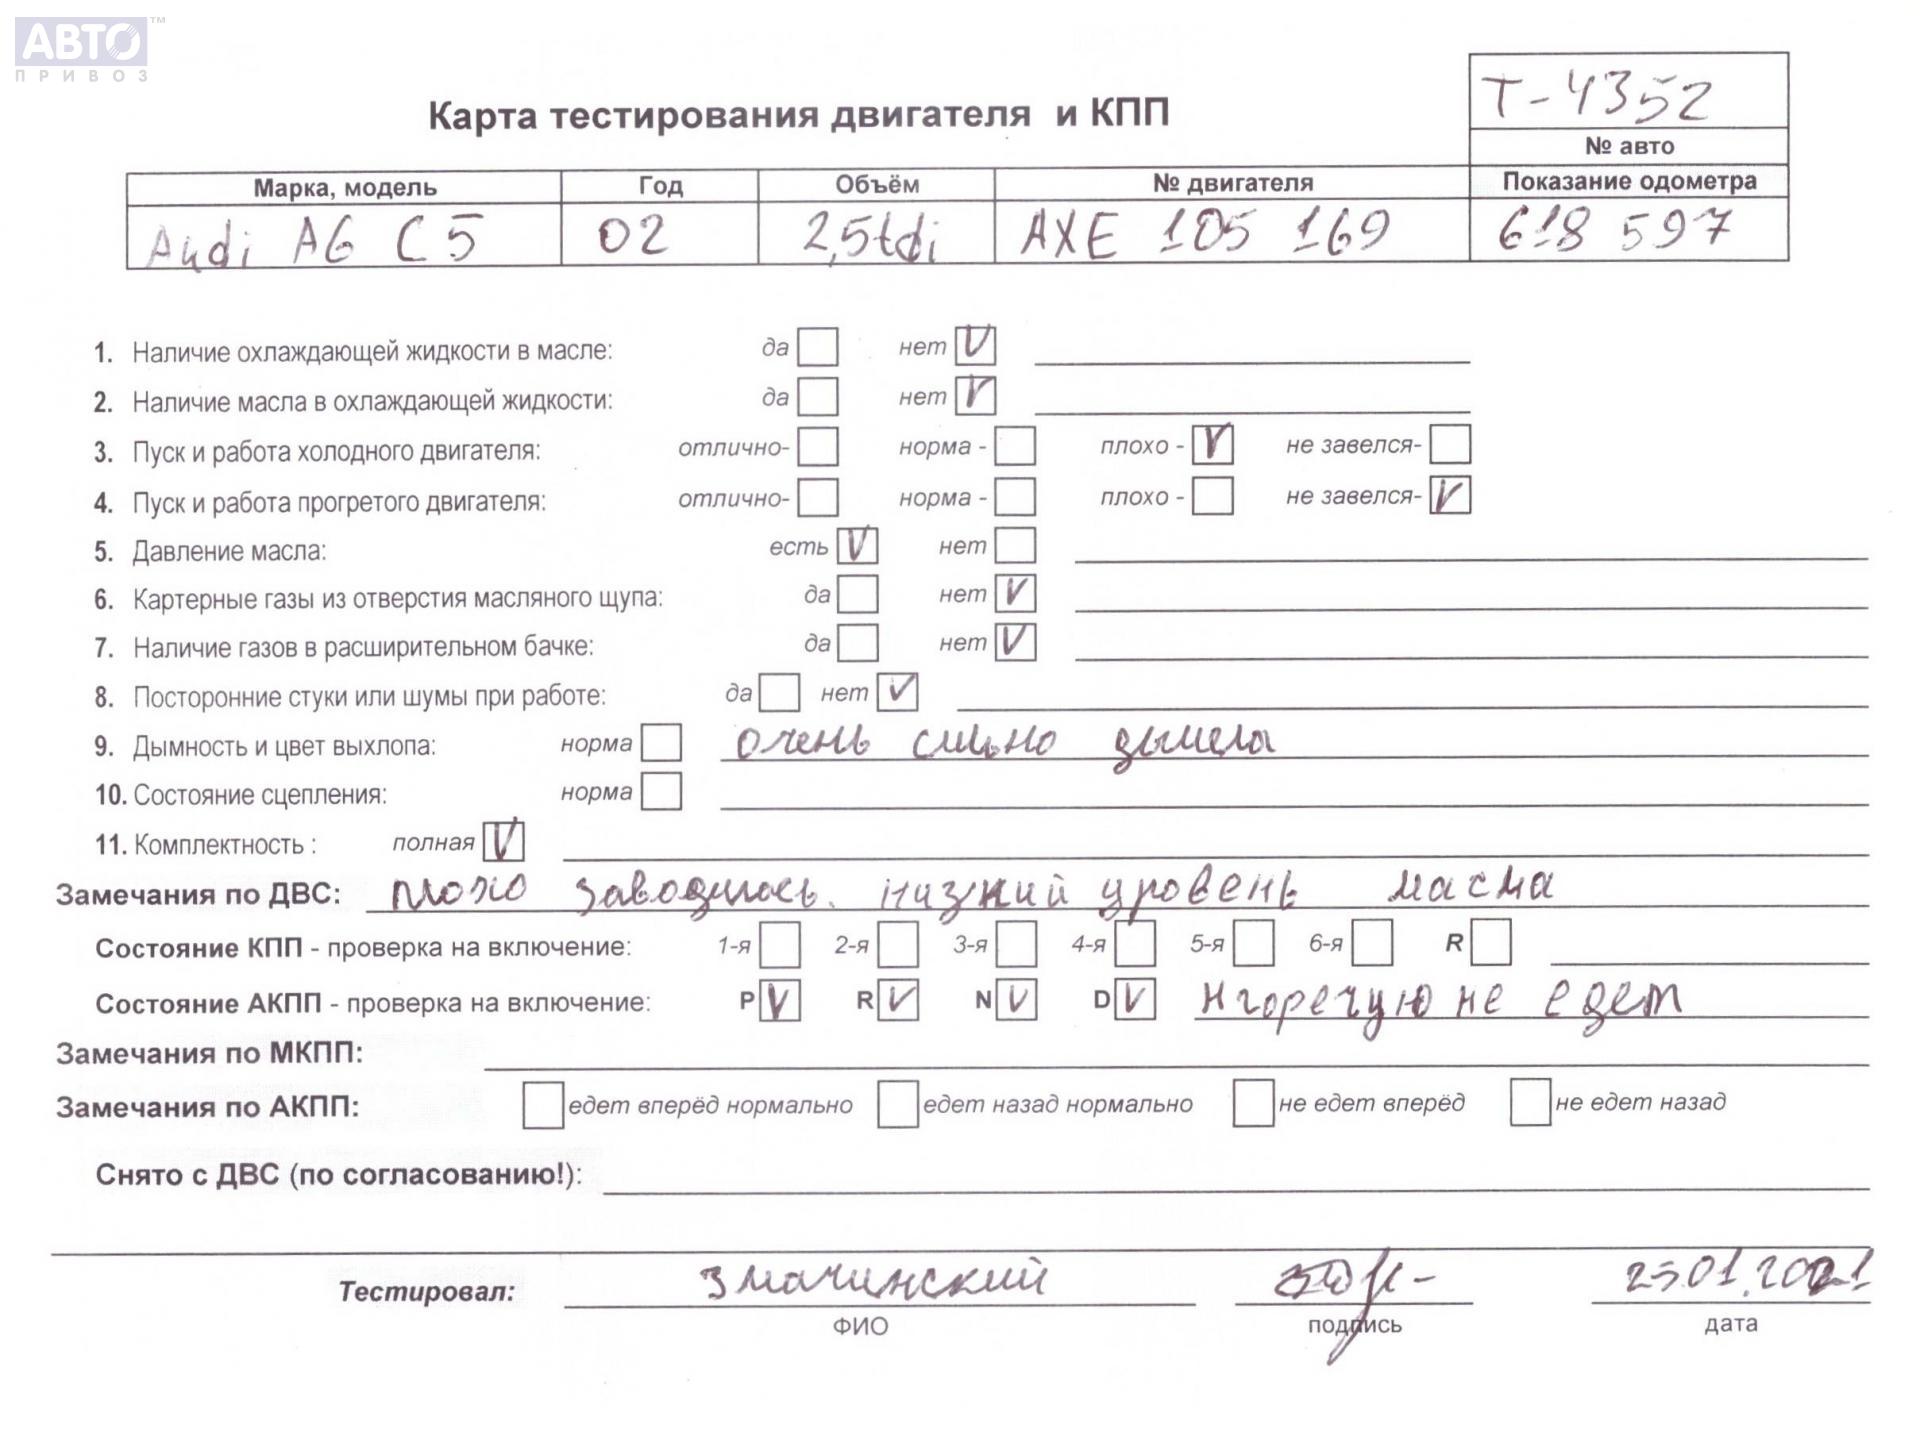 АВТО™
ПРИВОЗ
Т-4352
Карта тестирования двигателя и КПП
№ авто
Марка, модель Год Объём № двигателя Показание одометра
Audi A6 C5 02 2,5tdi AXE 105 169 618 597
1. Наличие охлаждающей жидкости в масле: да нет V
2. Наличие масла в охлаждающей жидкости: да нет V
3. Пуск и работа холодного двигателя: отлично- норма - плохо - V не завелся-
4. Пуск и работа прогретого двигателя: отлично- норма - плохо - не завелся- V
5. Давление масла: есть V нет
6. Картерные газы из отверстия масляного щупа: да нет V
7. Наличие газов в расширительном бачке: да нет V
8. Посторонние стуки или шумы при работе: да нет V
9. Дымность и цвет выхлопа: норма очень сильно дымила
10. Состояние сцепления: норма
11. Комплектность : полная V
Замечания по ДВС: плохо заводилась. низкий уровень масла
Состояние КПП - проверка на включение: 1-я 2-я 3-я 4-я 5-я 6-я R
Состояние АКПП - проверка на включение: P V R V N V D V н горечую не едет
Замечания по МКПП:
Замечания по АКПП: едет вперёд нормально едет назад нормально не едет вперёд не едет назад
Снято с ДВС (по согласованию!):
Тестировал: Змачинский 25.01.2021
ФИО подпись дата